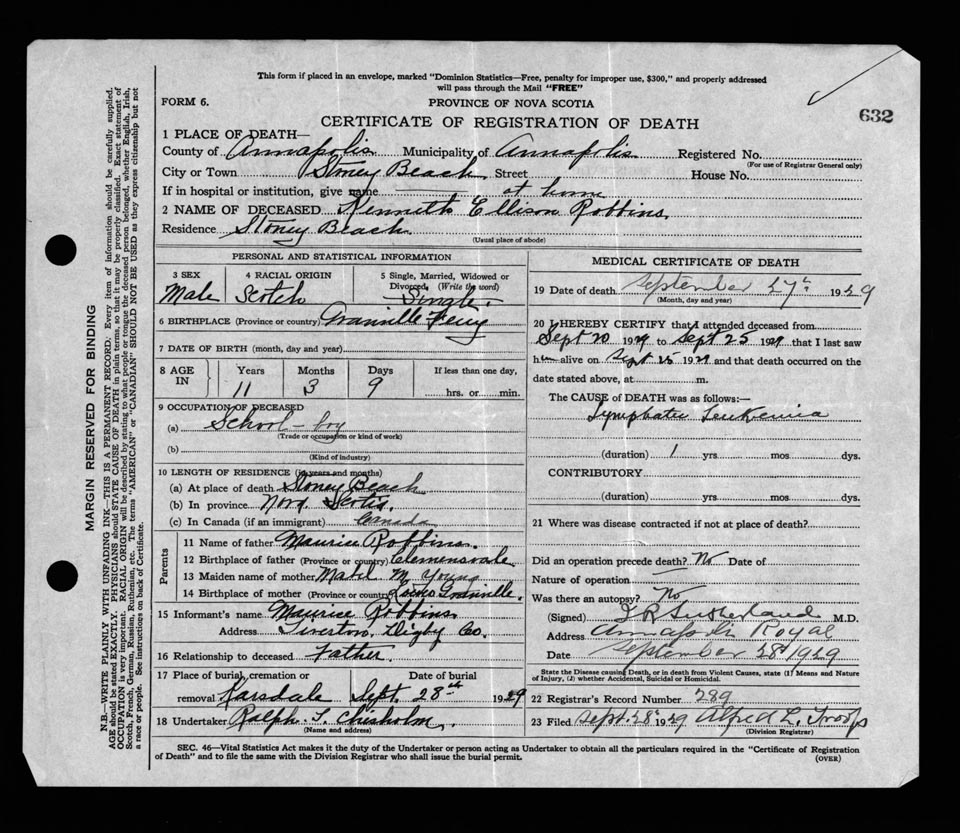 This form if placed in an envelope, marked "Dominion Statistics—Free, penalty for improper use, $300," and properly addressed
will pass through the Mail "FREE"
FORM 6.
PROVINCE OF NOVA SCOTIA
632
CERTIFICATE OF REGISTRATION OF DEATH
1 PLACE OF DEATH—
County of Annapolis Municipality of Annapolis Registered No.
(For use of Registrar General only)
City or Town Stoney Beach Street House No.
If in hospital or institution, give name at home
2 NAME OF DECEASED Kenneth Ellison Robbins.
Residence Stoney Beach.
(Usual place of abode)
PERSONAL AND STATISTICAL INFORMATION
3 SEX 4 RACIAL ORIGIN 5 Single, Married, Widowed or Divorced, (Write the word)
Male Scotch Single.
6 BIRTHPLACE (Province or country) Granville Ferry
7 DATE OF BIRTH (month, day and year)
8 AGE IN Years Months Days If less than one day,
11 3 9 hrs. or min.
9 OCCUPATION OF DECEASED
(a) School-boy
(Trade or occupation or kind of work)
(b)
(Kind of industry)
10 LENGTH OF RESIDENCE (in years and months)
(a) At place of death Stoney Beach
(b) In province Nova Scotia.
(c) In Canada (if an immigrant) Canada
Parents
11 Name of father Maurice Robbins.
12 Birthplace of father (Province or country) Clementsvale
13 Maiden name of mother Mabel M. Young
14 Birthplace of mother (Province or country) Granville.
15 Informant's name Maurice Robbins.
Address Tiverton, Digby Co.
16 Relationship to deceased Father.
17 Place of burial, cremation or removal Karsdale Date of burial Sept. 28th 1929
18 Undertaker Ralph T. Chisholm.
(Name and address)
MEDICAL CERTIFICATE OF DEATH
19 Date of death September 27th 1929
(Month, day and year)
20 I HEREBY CERTIFY that I attended deceased from
Sept 20 1929 to Sept 25 1929 that I last saw
him alive on Sept 25 1929 and that death occurred on the
date stated above, at m.
The CAUSE OF DEATH was as follows:—
Lymphatic Leukemia
(duration) 1 yrs mos dys.
CONTRIBUTORY
(duration) yrs. mos. dys.
21 Where was disease contracted if not at place of death?
Did an operation precede death? No Date of
Nature of operation
Was there an autopsy? No
(Signed) Sutherland M.D.
Address Annapolis Royal
Date September 28 1929
State the Disease causing Death, or in death from Violent Causes, state (1) Means and Nature
of Injury, (2) whether Accidental, Suicidal or Homicidal.
22 Registrar's Record Number 289
23 Filed Sept. 28 1929 Alfred L. Troop
(Division Registrar)
SEC. 46—Vital Statistics Act makes it the duty of the Undertaker or person acting as Undertaker to obtain all the particulars required in the "Certificate of Registration
of Death" and to file the same with the Division Registrar who shall issue the burial permit.
(OVER)
MARGIN RESERVED FOR BINDING
N.B.—WRITE PLAINLY WITH UNFADING INK—THIS IS A PERMANENT RECORD. Every item of information should be carefully supplied.
AGE should be stated EXACTLY. PHYSICIANS should STATE CAUSE OF DEATH in plain terms, so that it may be properly classified. Exact statement of
OCCUPATION is very important. RACIAL ORIGIN will be described by stating to what people or tongue the deceased person belonged, whether English, Irish,
Scotch, French, German, Russian, Ruthenian, etc. The terms "AMERICAN" or "CANADIAN" SHOULD NOT BE USED as they express citizenship but not
a race or people. See instructions on back of Certificate.